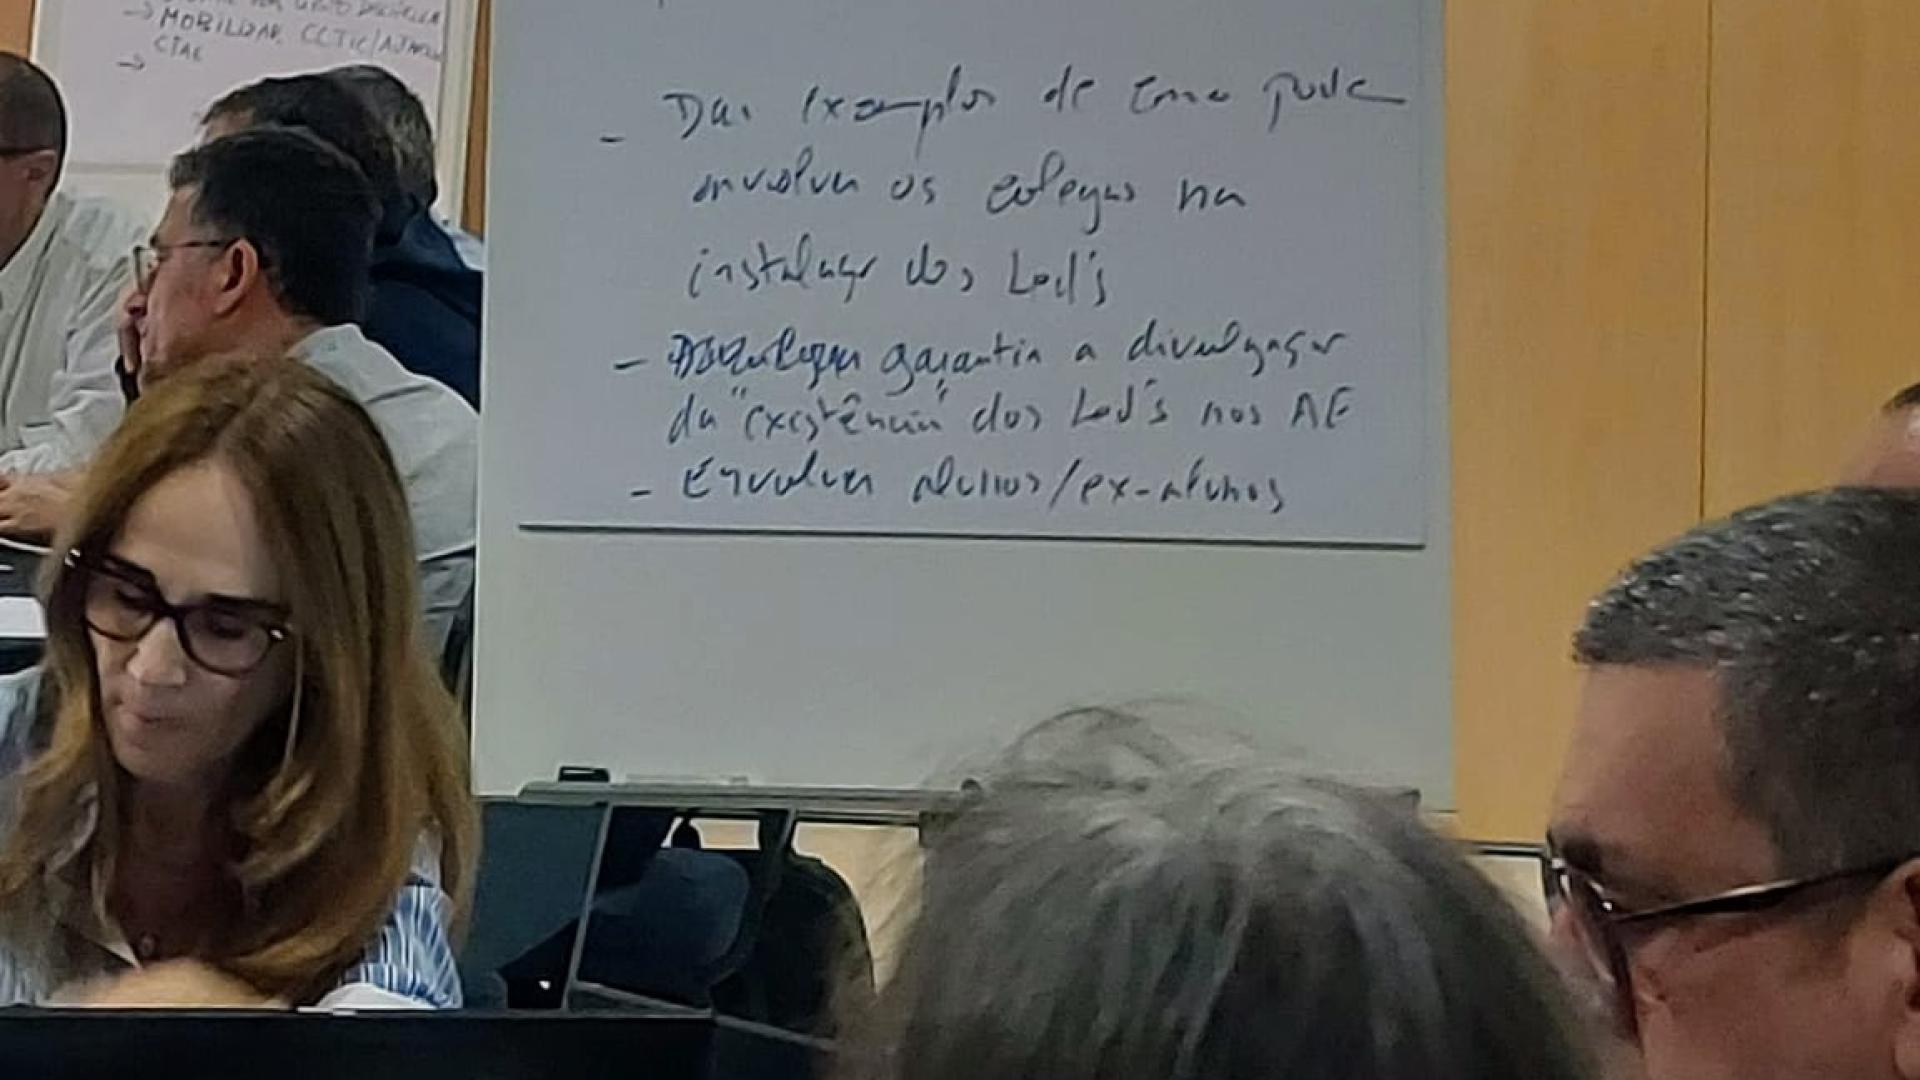 → MOBILIZAR CCTIC/
CTAE
→
- Dar exemplos de como pode
envolver os colegas na
instalação dos Led's
- garantia a divulgação
da "existência" dos Led's nos AE
- Envolver alunos/ex-alunos